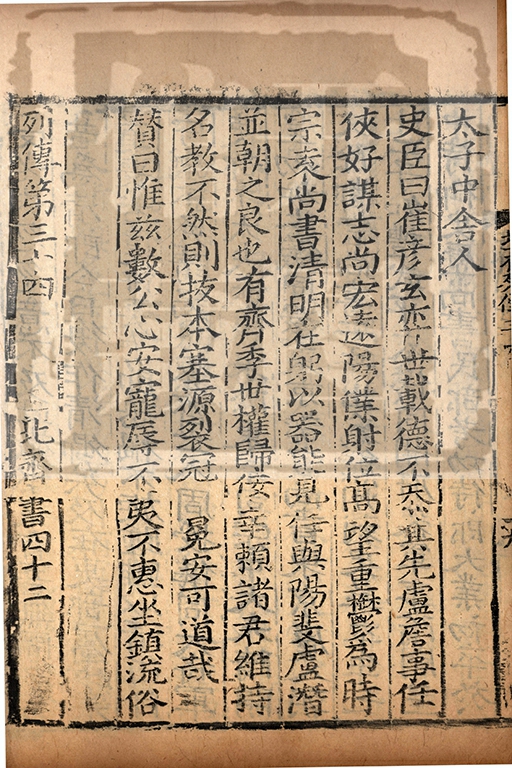 太子中舎人
史臣曰崔彦玄弈世載德不忝其先盧詹事任
俠好謀志尚宏遠陽僕射位高望重欝爲時
宗袁尚書清明在躬以器能見待與陽斐盧潛
並朝之良也有齊季世權歸佞幸賴諸君維持
名教不然則拔本塞源裂冠　冕安可道哉
賛曰惟茲數公心安寵辱不夷不惠坐鎮流俗
列傳第三十四　北齊書四十二